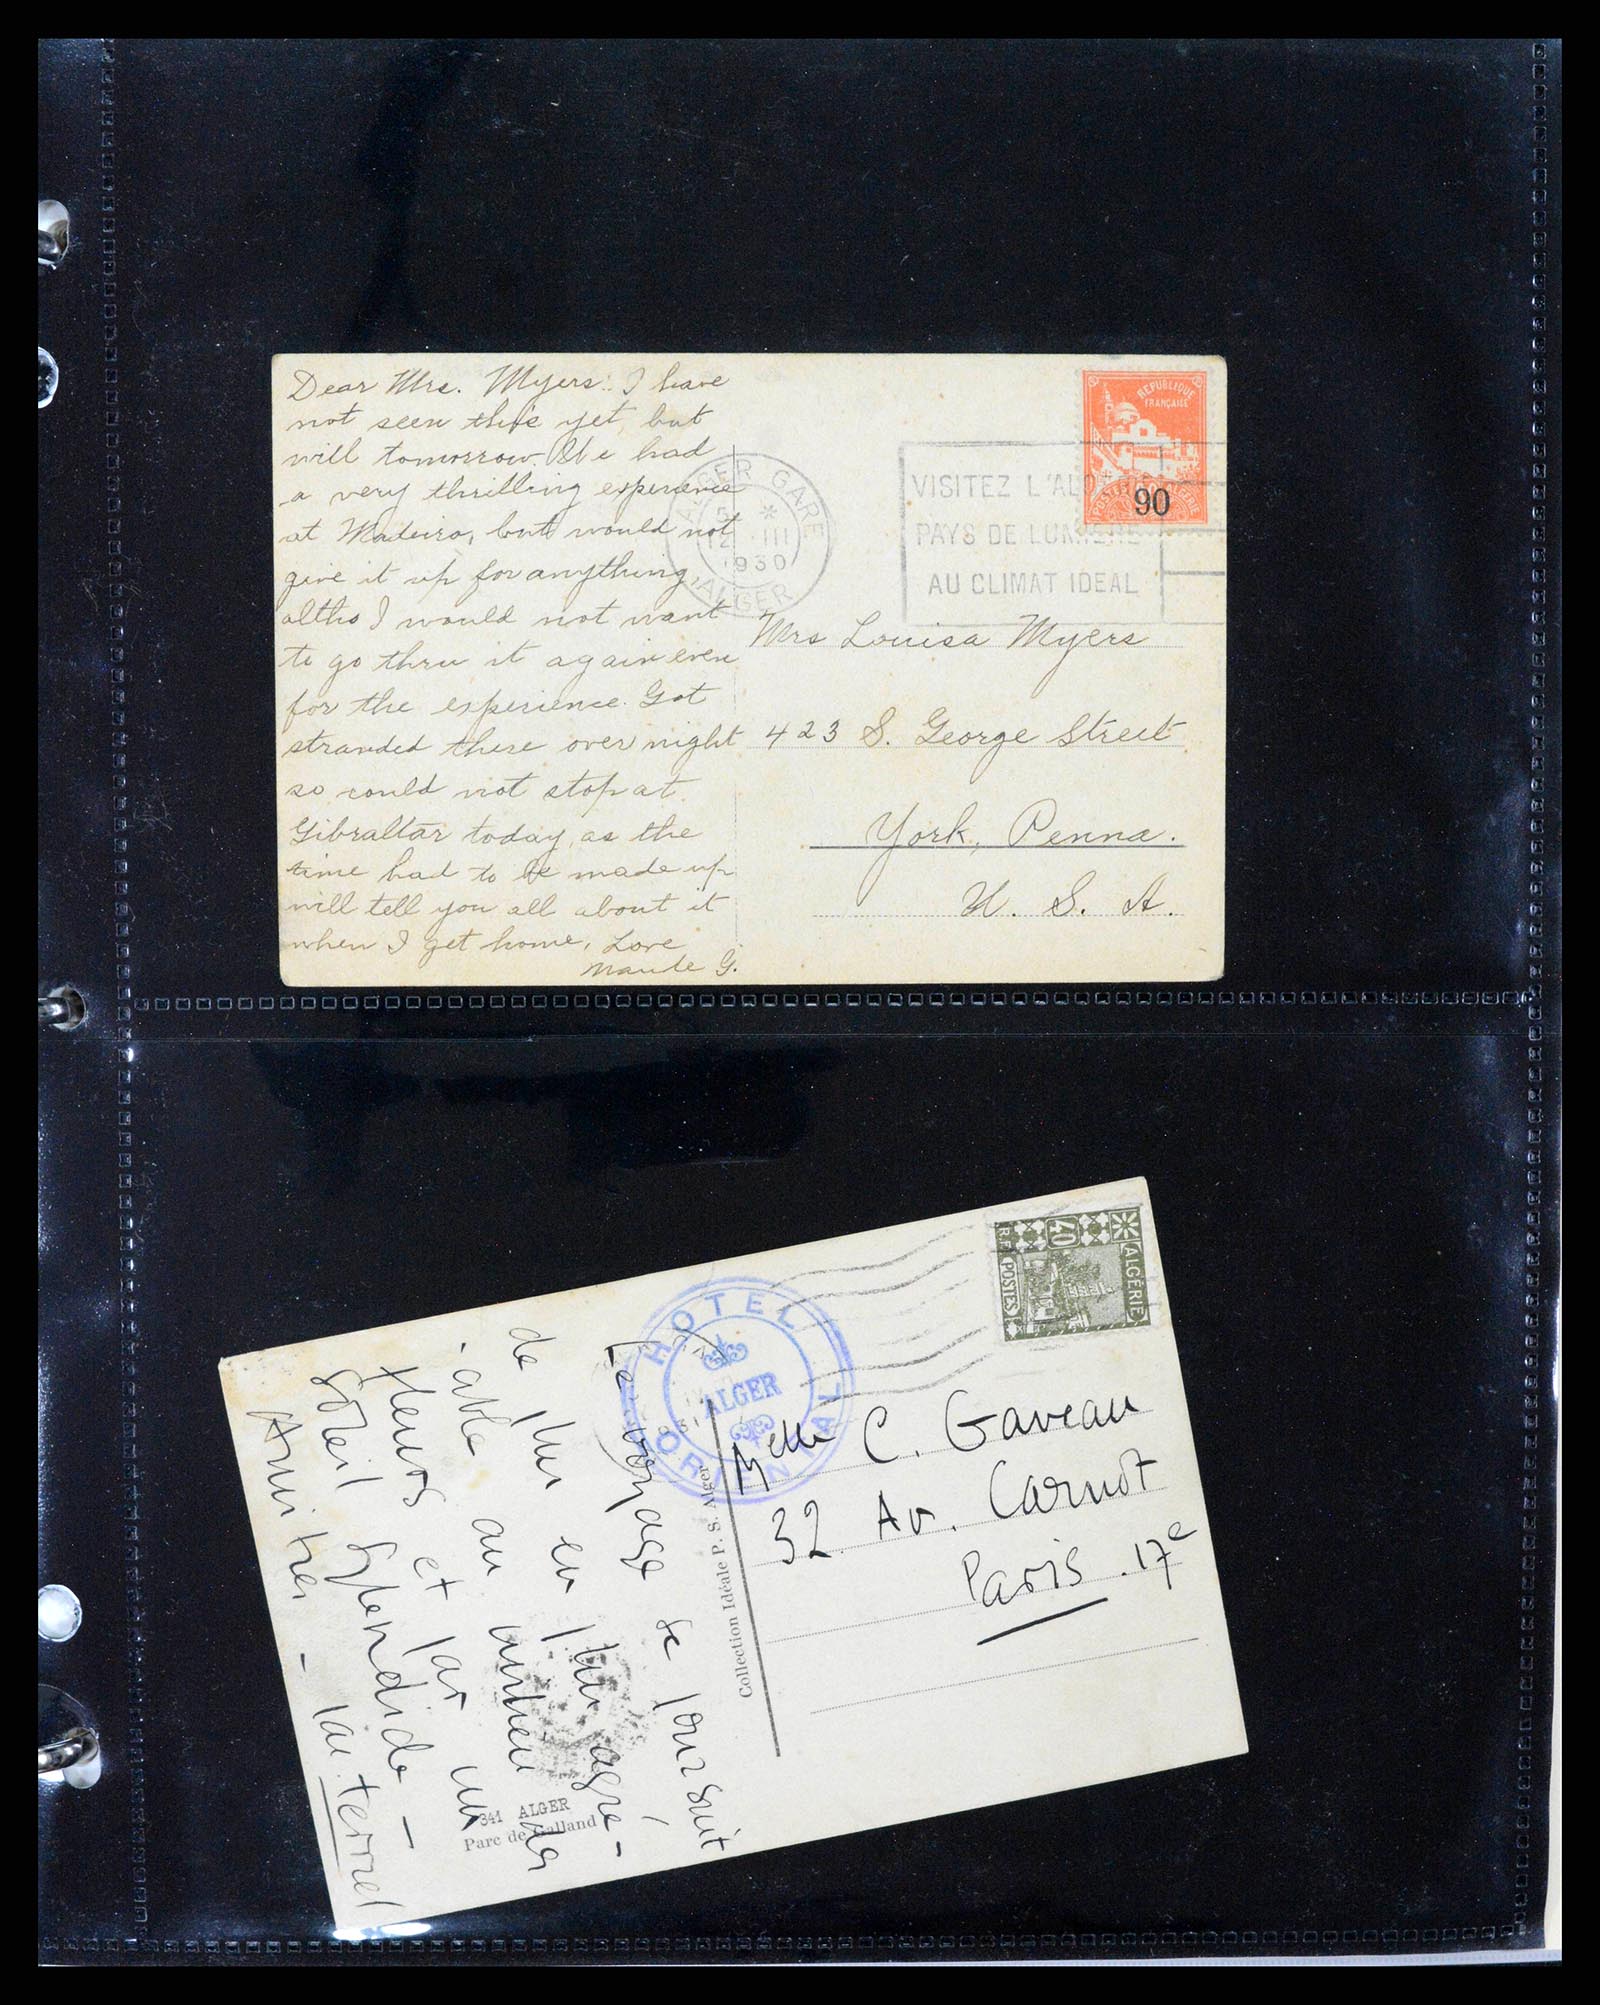 Dear Mrs. Myers: I have
not seen this yet but
will tomorrow. We had
a very thrilling experience
at Madeira, but would not
give it up for anything,
altho I would not want
to go thru it again even
for the experience. Got
stranded there over night
so could not stop at
Gibraltar today, as the
time had to be made up
will tell you all about it
when I get home, Love
Maude G.
REPUBLIQUE
FRANÇAISE
90
ALGER GARE
5 *
12 III
1930
ALGER
VISITEZ L'ALG
PAYS DE LUMIERE
AU CLIMAT IDEAL
Mrs Louisa Myers
423 S. George Street
York, Penna.
U. S. A.
ALGÉRIE
40
R.F.
POSTES
HOTEL
ALGER
ORIENTAL
Melle C. Gaveau
32 Av. Carnot
Paris. 17e
Collection Idéale P. S. Alger
Le voyage se poursuit
de plus en plus agré-
able au milieu des
fleurs et par un
soleil splendide -
Amitiés -
341 ALGER
Parc de Galland